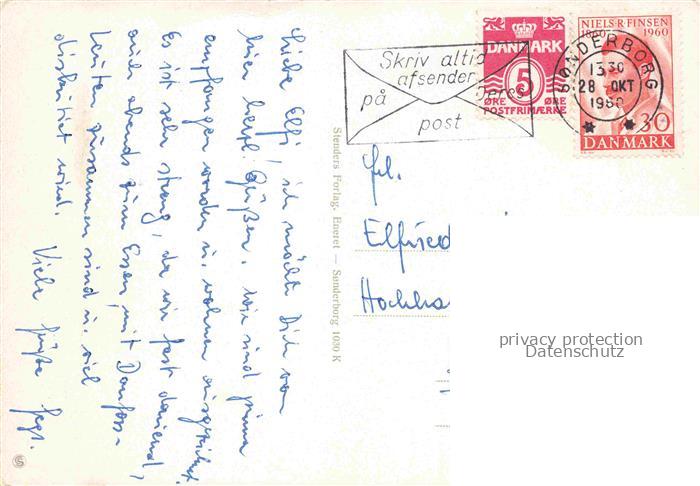 Liebe Elfi, ich möchte Dich von
hier herzl. Grüßen. Wir sind prima
empfangen worden u. wohnen ausgezeichnet.
Es ist sehr streng, da wir fast dauernd,
auch abends zum Essen, mit Danfoss-
Leuten zusammen sind u. viel
diskutiert wird.
Viele Grüße
Skriv altid
afsender
på Deres
post
DANMARK
5
ØRE ØRE
POSTFRIMÆRKE
NIELS R FINSEN
1860 1960
30
DANMARK
SØNDERBORG
13.30
28 OKT
1960
Stenders Forlag. Eneret — Sønderborg 1030 K
Frl.
Elfried
Hochha
privacy protection
Datenschutz